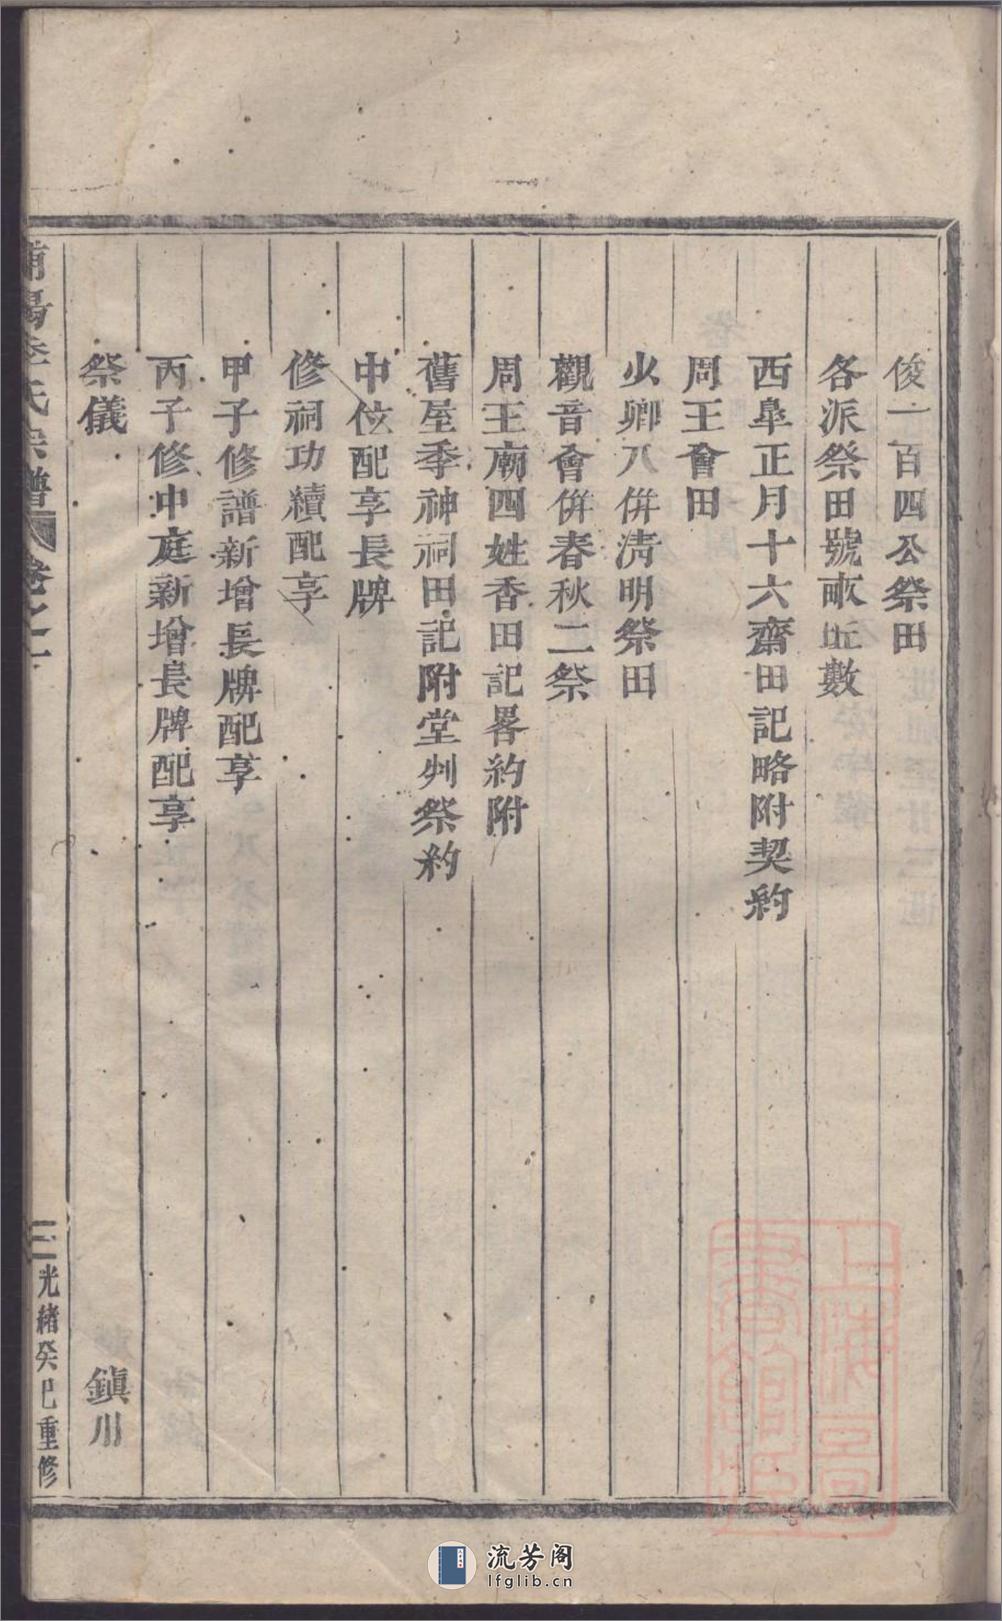 俊一百四公祭田
各派祭田號畝坵數
西臯正月十六齋田記略附契約
周王會田
少卿八併淸明祭田
觀音會併春秋二祭
周王廟四姓香田記畧約附
舊屋季神祠田記附堂州祭約
中位配享長牌
修祠功績配享
甲子修譜新增長牌配享
丙子修中庭新增長牌配享
祭儀
鎭川
氏宗譜
卷之一
光緒癸巳重修
上海圖書館藏
流芳阁
lfglib.cn